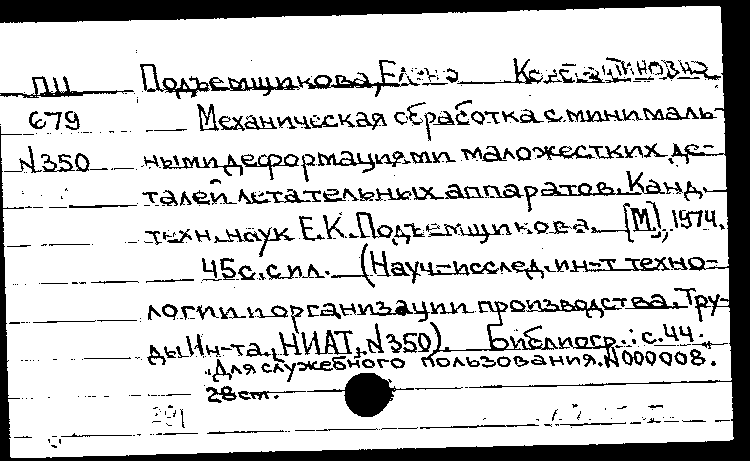 ПЦ Подъемщикова, Елена Константиновна
679 Механическая обработка с минималь-
N350 ными деформациями маложестких де-
талей летательных аппаратов. Канд.
техн. наук Е.К. Подъемщикова. [М], 1974.
45 с. с ил. (Науч-исслед. ин-т техно-
логии и организации производства. Тру-
ды Ин-та, НИАТ, N350). Библиогр.: с. 44.
"Для служебного пользования. N000008.
28 ст.